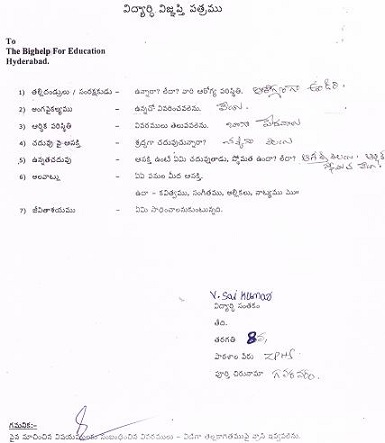 విద్యార్థి విజ్ఞప్తి పత్రము
To
The Bighelp For Education
Hyderabad.
1) తల్లిదండ్రులు / సంరక్షకుడు - ఉన్నారా? లేదా? వారి ఆరోగ్య పరిస్థితి.
2) అంగవైకల్యము - ఉన్నచో వివరించవలెను.
3) ఆర్థిక పరిస్థితి - వివరములు తెలుపవలెను.
4) చదువు పై ఆసక్తి - శ్రద్ధగా చదువుచున్నారా?
5) ఉన్నతచదువు - ఆసక్తి ఉంటే ఏమి చదువుతాడు, స్తోమత ఉందా? లేదా?
6) అలవాట్లు - ఏఏ పనుల మీద ఆసక్తి.
ఉదా - కవిత్వము, సంగీతము, అల్లికలు, నాట్యము
7) జీవితాశయము - ఏమి సాధించాలనుకుంటున్నది.
V. Sai Kumar
విద్యార్థి సంతకం
తేది.
తరగతి 8వ
పాఠశాల పేరు ZPHS
పూర్తి చిరునామా
గమనిక:-
పైన సూచించిన విషయములకు సంబంధించిన వివరములు - విడిగా తెల్లకాగితముపై వ్రాసి ఇవ్వవలెను.